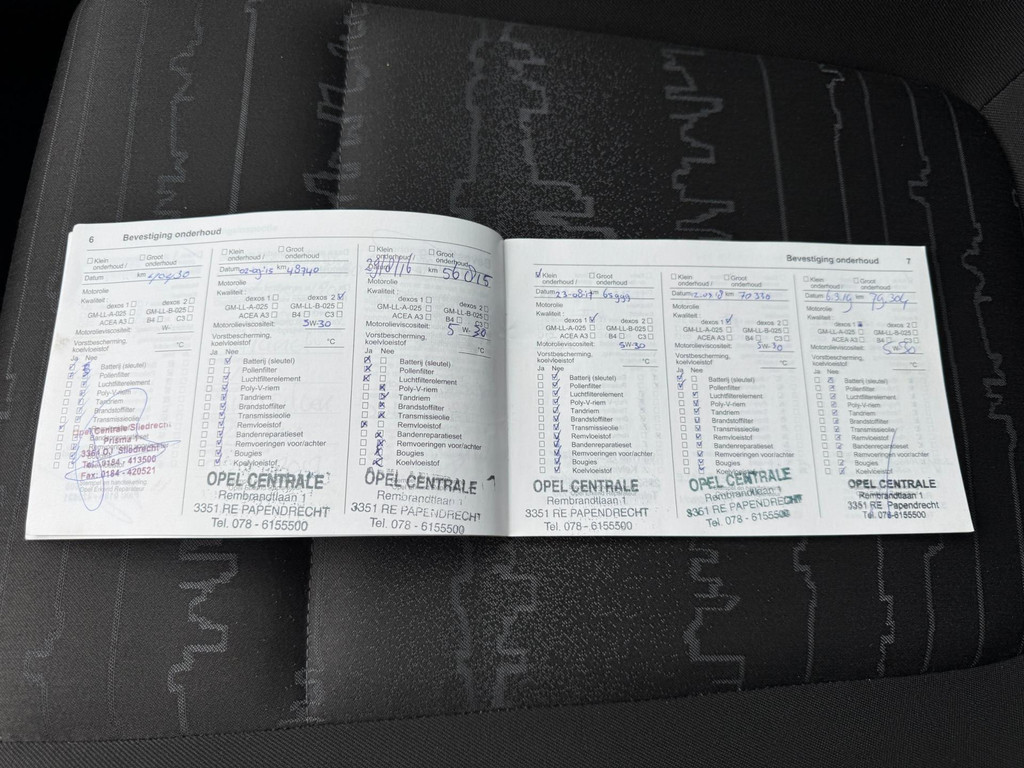 6 Bevestiging onderhoud
Klein onderhoud / Groot onderhoud
Datum km
Motorolie
Kwaliteit :
dexos 1 dexos 2
GM-LL-A-025 GM-LL-B-025
ACEA A3 B4 C3
Motorolieviscositeit: W-
Vorstbescherming, koelvloeistof °C
Ja Nee
Batterij (sleutel)
Pollenfilter
Luchtfilterelement
Poly-V-riem
Tandriem
Brandstoffilter
Opel Centrale Sliedrecht
Prisma 1
3364 DJ Sliedrecht
Tel: 0184 - 413500
Fax: 0184 - 420521
Klein onderhoud / Groot onderhoud
Datum 02-09-15 km 48740
Motorolie
Kwaliteit :
dexos 1 dexos 2
GM-LL-A-025 GM-LL-B-025
ACEA A3 B4 C3
Motorolieviscositeit: 5W-30
Vorstbescherming, koelvloeistof °C
Ja Nee
Batterij (sleutel)
Pollenfilter
Luchtfilterelement
Poly-V-riem
Tandriem
Brandstoffilter
Transmissieolie
Remvloeistof
Bandenreparatieset
Remvoeringen voor/achter
Bougies
Koelvloeistof
OPEL CENTRALE
Rembrandtlaan 1
3351 RE PAPENDRECHT
Tel. 078 - 6155500
Klein onderhoud / Groot onderhoud
km 56815
Motorolie
Kwaliteit :
dexos 1 dexos 2
GM-LL-A-025 GM-LL-B-025
ACEA A3 B4 C3
Motorolieviscositeit: 5 W- 30
Vorstbescherming, koelvloeistof °C
Ja Nee
Batterij (sleutel)
Pollenfilter
Luchtfilterelement
Poly-V-riem
Tandriem
Brandstoffilter
Transmissieolie
Remvloeistof
Bandenreparatieset
Remvoeringen voor/achter
Bougies
Koelvloeistof
OPEL CENTRALE
Rembrandtlaan 1
3351 RE PAPENDRECHT
Tel. 078 - 6155500
Bevestiging onderhoud 7
Klein onderhoud / Groot onderhoud
Datum 23-08-17 65999
Motorolie
Kwaliteit :
dexos 1 dexos 2
GM-LL-A-025 GM-LL-B-025
ACEA A3 B4 C3
Motorolieviscositeit: 5W-30
Vorstbescherming, koelvloeistof °C
Ja Nee
Batterij (sleutel)
Pollenfilter
Luchtfilterelement
Poly-V-riem
Tandriem
Brandstoffilter
Transmissieolie
Remvloeistof
Bandenreparatieset
Remvoeringen voor/achter
Bougies
Koelvloeistof
OPEL CENTRALE
Rembrandtlaan 1
3351 RE PAPENDRECHT
Tel. 078 - 6155500
Klein onderhoud / Groot onderhoud
Datum km 70330
Motorolie
Kwaliteit :
dexos 1 dexos 2
GM-LL-A-025 GM-LL-B-025
ACEA A3 B4 C3
Motorolieviscositeit: 5W-30
Vorstbescherming, koelvloeistof °C
Ja Nee
Batterij (sleutel)
Pollenfilter
Luchtfilterelement
Poly-V-riem
Tandriem
Brandstoffilter
Transmissieolie
Remvloeistof
Bandenreparatieset
Remvoeringen voor/achter
Bougies
Koelvloeistof
OPEL CENTRALE
Rembrandtlaan 1
3351 RE PAPENDRECHT
Tel. 078 - 6155500
Klein onderhoud / Groot onderhoud
Datum 6.3.19 79.304
Motorolie
Kwaliteit :
dexos 1 dexos 2
GM-LL-A-025 GM-LL-B-025
ACEA A3 B4 C3
Motorolieviscositeit: 5W-30
Vorstbescherming, koelvloeistof °C
Ja Nee
Batterij (sleutel)
Pollenfilter
Luchtfilterelement
Poly-V-riem
Tandriem
Brandstoffilter
Transmissieolie
Remvloeistof
Bandenreparatieset
Remvoeringen voor/achter
Bougies
Koelvloeistof
OPEL CENTRALE
Rembrandtlaan 1
3351 RE Papendrecht
Tel. 078-6155500